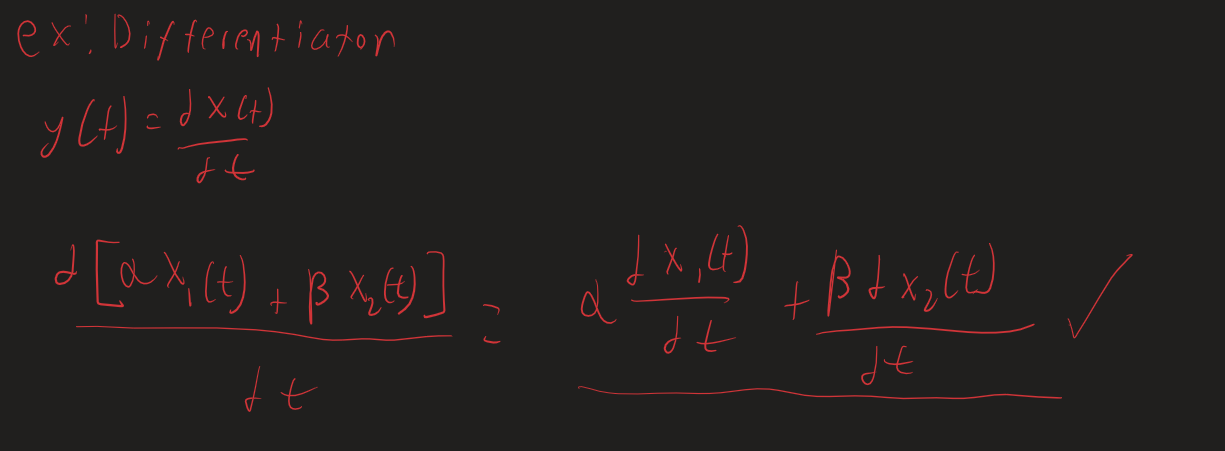 ex: Differentiator
y(t) = dx(t)/dt
d[αx₁(t) + βx₂(t)]/dt = α dx₁(t)/dt + β dx₂(t)/dt ✓